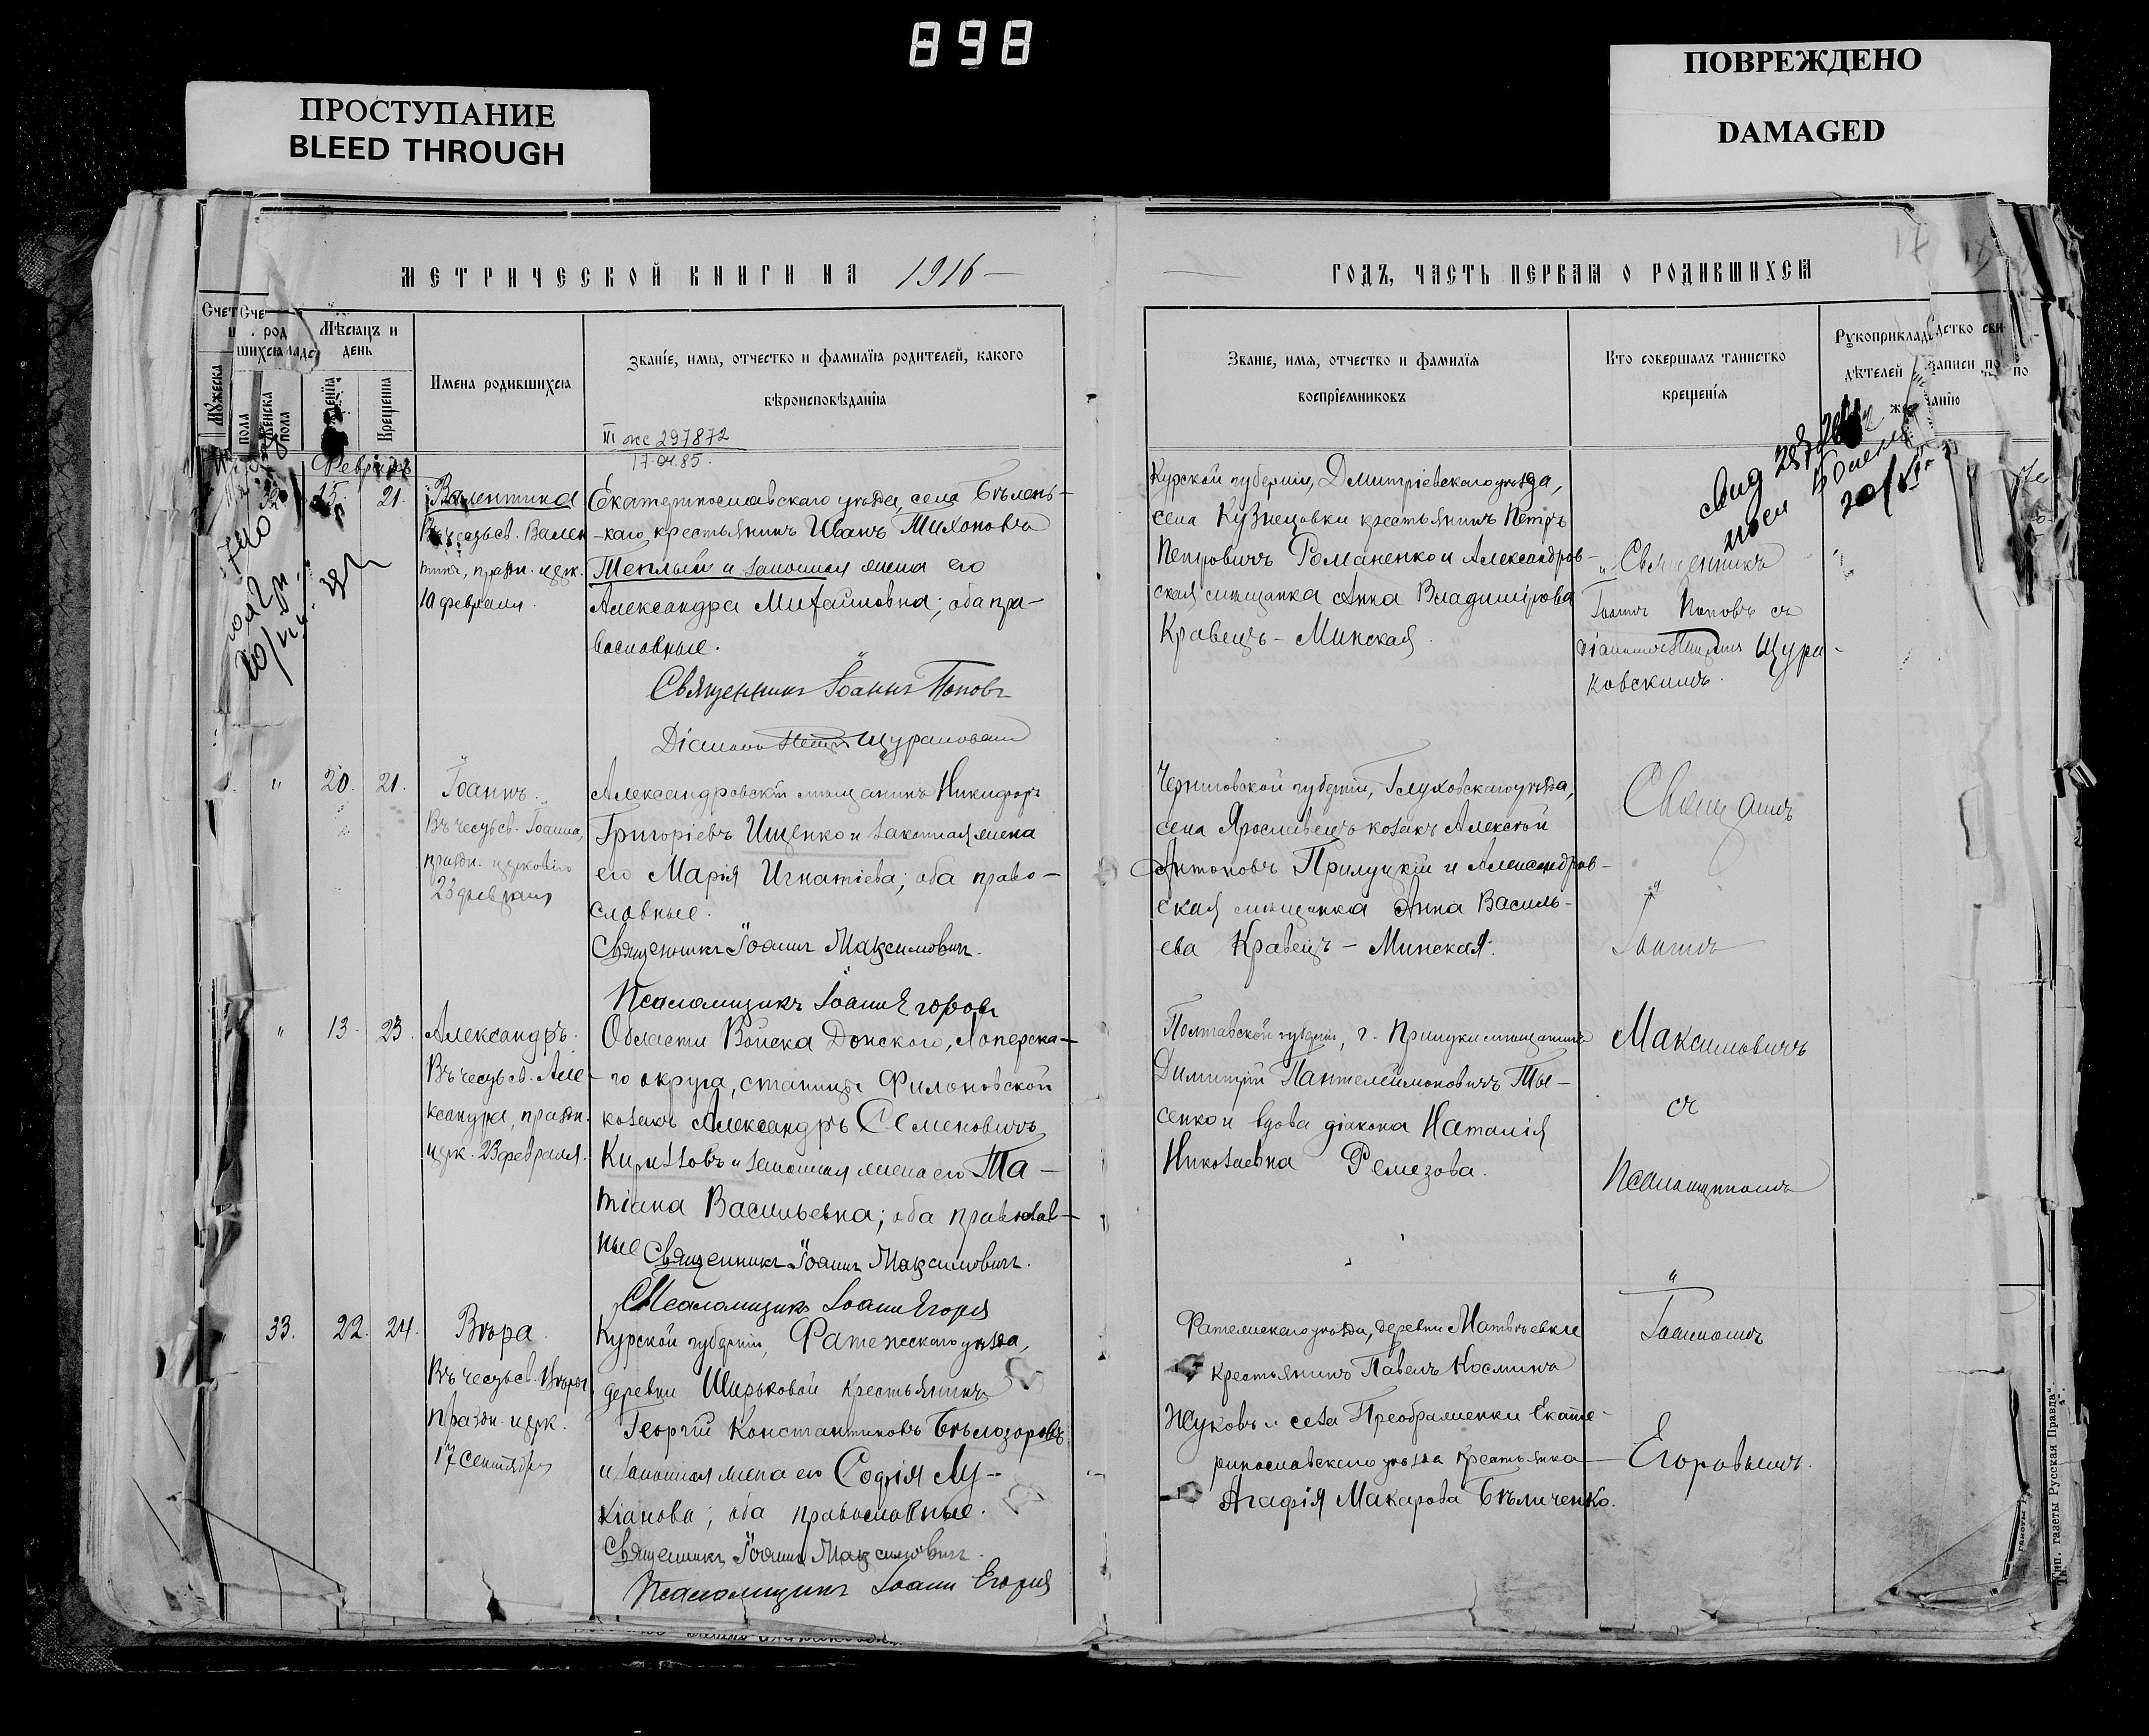 898
ПРОСТУПАНИЕ
BLEED THROUGH
ПОВРЕЖДЕНО
DAMAGED
МЕТРИЧЕСКОЙ КНИГИ НА 1916
ГОДЪ, ЧАСТЬ ПЕРВАЯ О РОДИВШИХСЯ
Счет
Сче
род
шихся
Мѣсяцъ и
день
Мужеска
пола
Женска
пола
Крещенія
Имена родившихся
Званіе, имя, отчество и фамилія родителей, какого
вѣроисповѣданія
Званіе, имя, отчество и фамилія
воспріемниковъ
Кто совершалъ таинство
крещенія
Рукоприклад
дѣтелей
записи по
по
III же 297872
17.04.85.
Февраль
32 15 21.
Валентина
Въ честь св. Вален
тины, праздн. церк.
10 февраля.
Екатеринославскаго уѣзда, села Бѣлень-
-каго крестьянинъ Иванъ Тихоновъ
Теплый и законная жена его
Александра Михайловна; оба пра-
вославные.
Священникъ Іоаннъ Поповъ
Діаконъ
Курской губерніи, Дмитріевскаго уѣзда,
села Кузнецовки крестьянинъ Петръ
Петровичъ Романенко и Александров-
ская мѣщанка Анна Владимірова
Кравецъ - Минская.
Священникъ
Іоаннъ Поповъ съ
діакономъ Щура-
ковскимъ.
20 21.
Іоаннъ.
Въ честь св. Іоанна,
праздн. церковію
23 февраля
Александровскій мѣщанинъ Никифоръ
Григоріевъ Ищенко и законная жена
его Марія Игнатіева; оба право-
славные.
Священникъ Іоаннъ Максимовичъ.
Псаломщикъ Іоаннъ Егоровъ
Черниговской губерніи, Глуховскаго уѣзда,
села Ярославецъ козакъ Алексѣй
Антоновъ Прилуцкій и Александров-
ская мѣщанка Анна Василь-
ева Кравецъ - Минская.
Священникъ
Іоаннъ
Максимовичъ
съ
Псаломщикомъ
Іоанномъ
Егоровымъ.
13 23
Александръ.
Въ честь св. Але-
ксандра, праздн.
церк. 23 февраля.
Области Войска Донского, Хоперска-
-го округа, станицы Филоновской
козакъ Александръ Семеновичъ
Кирилловъ и законная жена его Та-
тіана Васильевна; оба православ-
ные Священникъ Іоаннъ Максимовичъ.
Псаломщикъ Іоаннъ Егоровъ
Полтавской губерніи, г. Прилуки мѣщанинъ
Димитрій Пантелеимоновичъ Ты-
сенко и вдова діакона Наталія
Николаевна Ремезова.
33. 22. 24.
Вѣра
Въ честь св. Вѣры,
праздн. церк.
17 сентября
Курской губерніи, Фатежскаго уѣзда,
деревни Ширьковой крестьянинъ
Георгій Константиновъ Бѣлозоровъ
и законная жена его Софія Лу-
кіанова; оба православные.
Священникъ Іоаннъ Максимовичъ.
Псаломщикъ Іоаннъ Егоровъ
Фатежскаго уѣзда, деревни Матвѣевки
крестьянинъ Павелъ Косминъ
Жуковъ и села Преображенки Екате-
ринославскаго уѣзда крестьянка
Агафія Макарова Бѣличенко.
Тип. газеты „Русская Правда“.